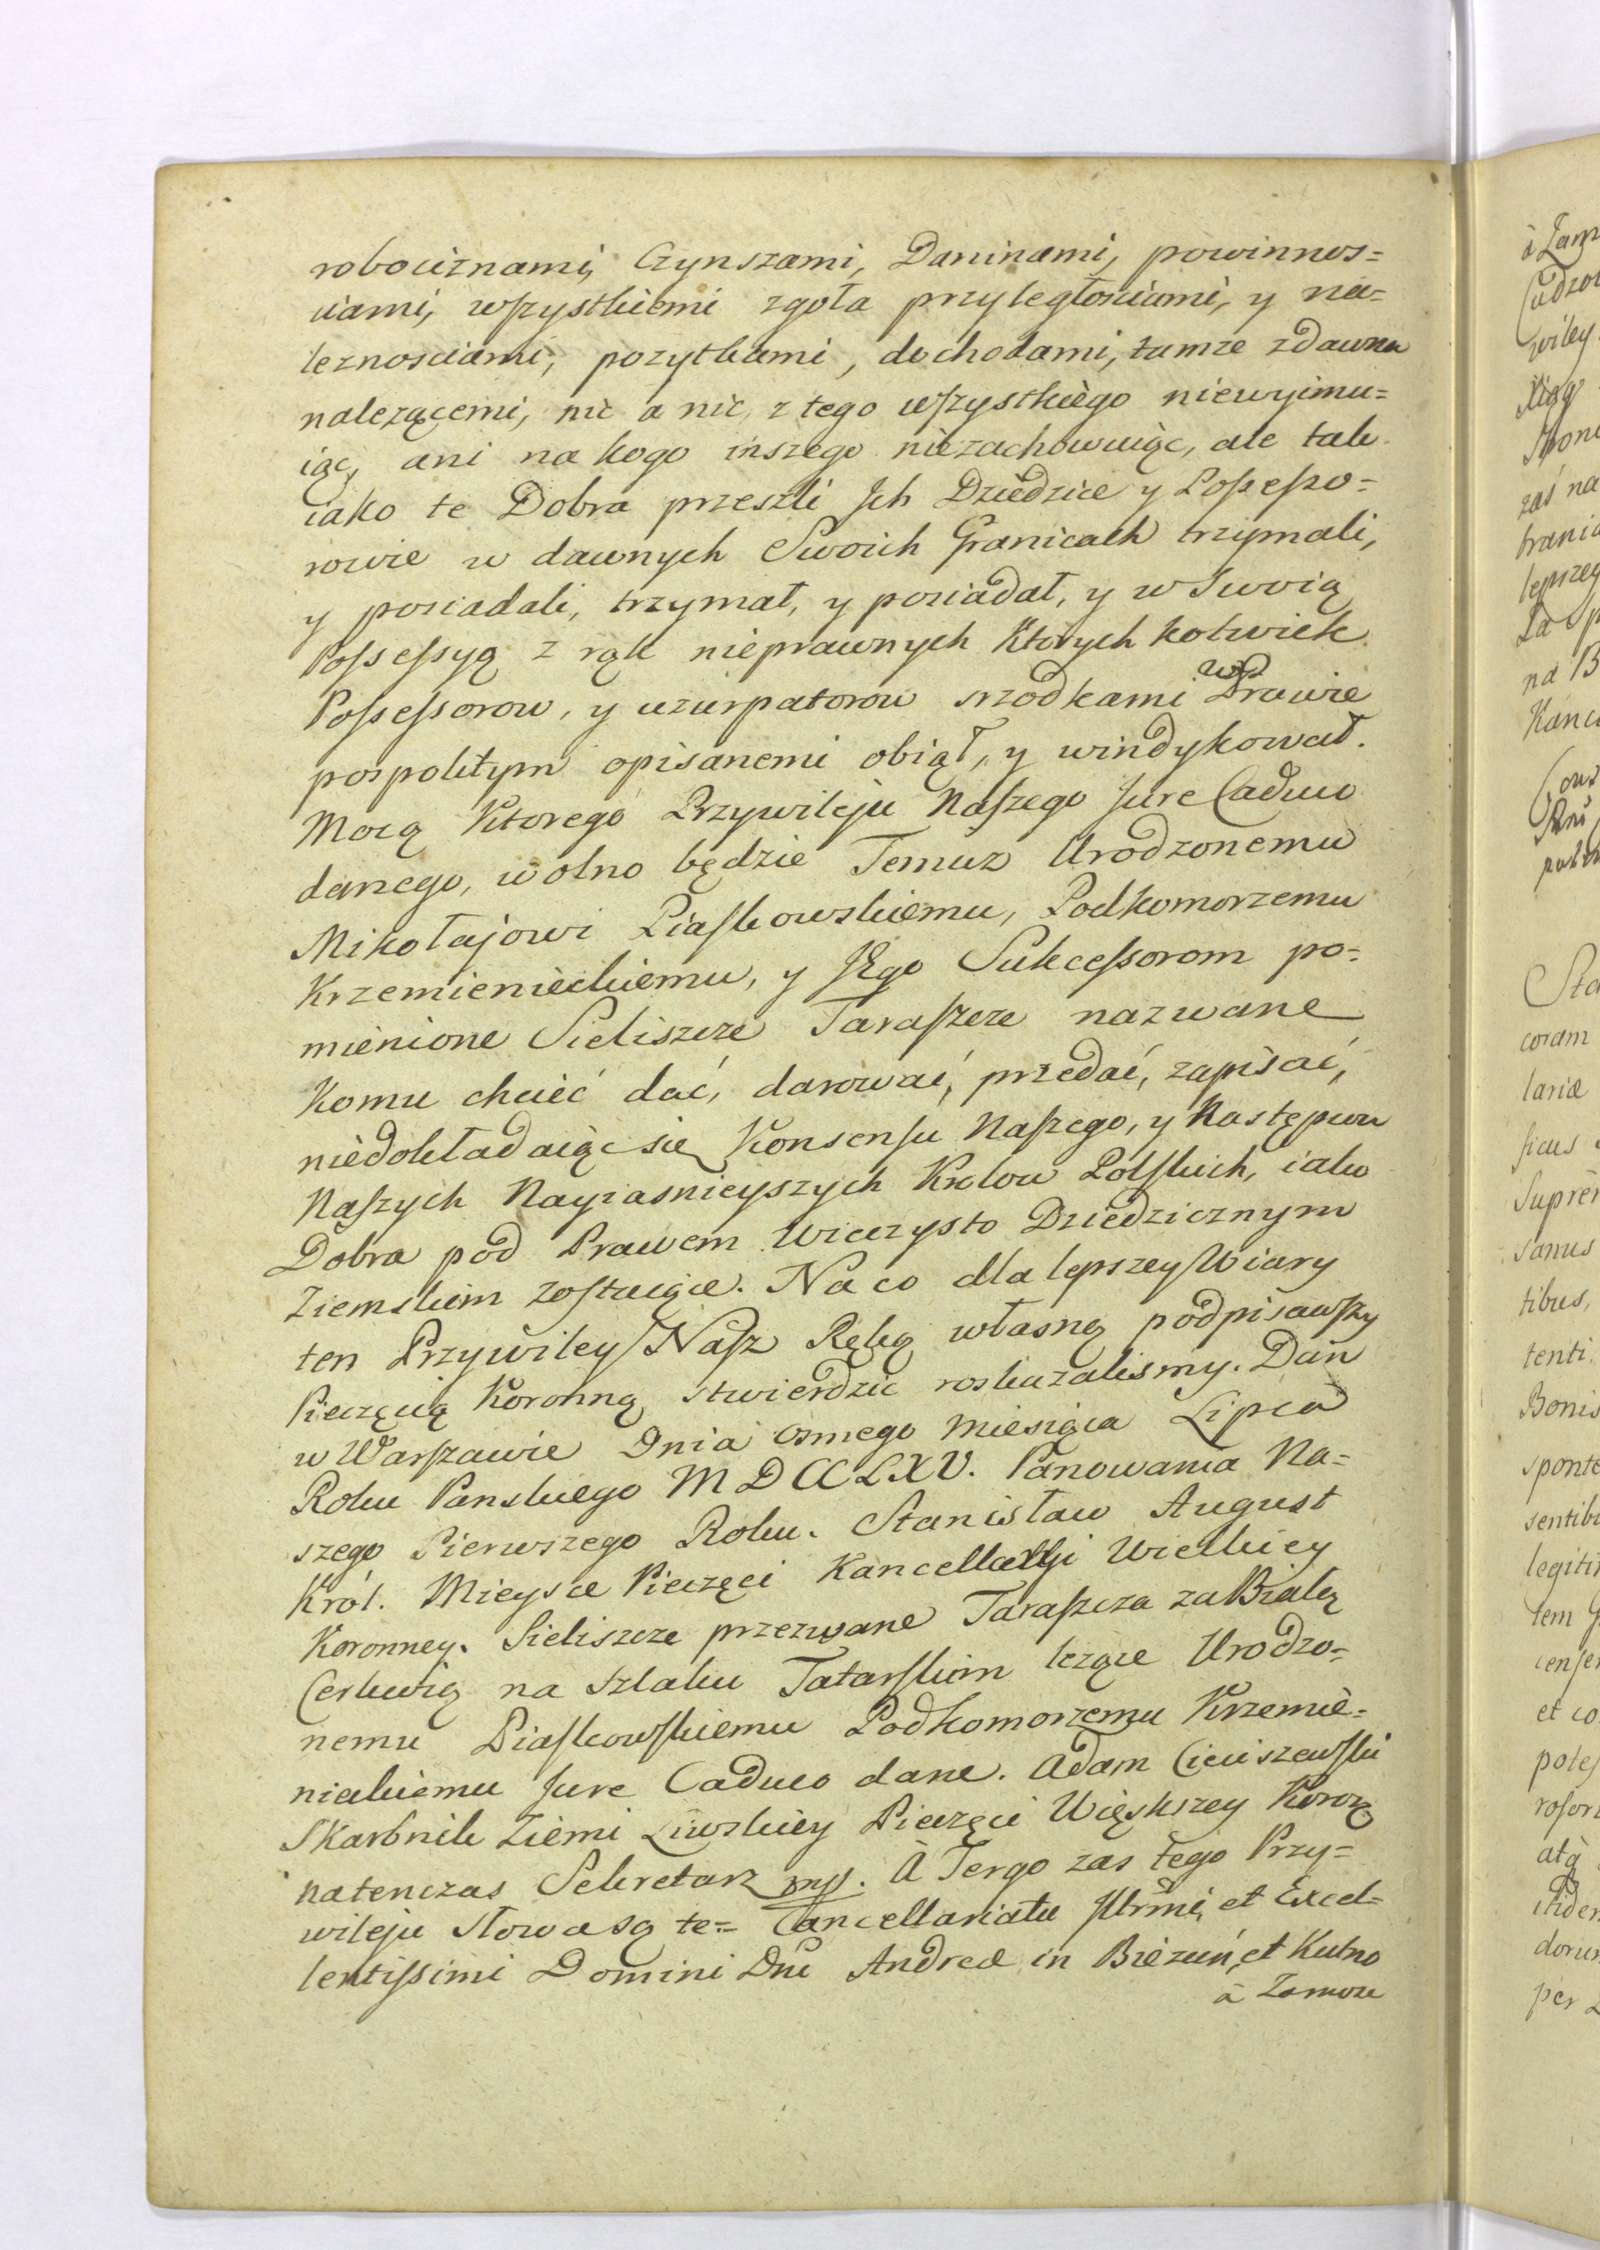 robociznami, Czynszami, Daninami, powinnos=
ciami, wszystkiemi zgoła przyległosciami, y na=
leznosciami, pozytkami, dochodami, tamze zdawna
nalezącemi, nic a nic z tego wszystkiego niewyimu=
iąc, ani na kogo inszego niezachowuiąc, ale tak
iako te Dobra przeszli Jch Dziedzice y Possesso=
rowie w dawnych Swoich Granicach trzymali,
y posiadali, trzymał, y posiadał, y w Swoią
Possessyą z rąk nieprawnych Ktorych kolwiek
Possessorow, y uzurpatorow srzodkami w Prawie
pospolitym opisanemi obiął, y windykował.
Mocą Ktorego Przywileju Naszego Jure Caduco
danego, wolno będzie Temuz Urodzonemu
Mikołajowi Piaskowskiemu, Podkomorzemu
Krzemienieckiemu, y JEgo Sukcessorom po=
mienione Sieliszcze Taraszcze nazwane
Komu chcieć dać, darować, przedać, zapisać,
niedokładaiąc się Konsensu Naszego, y Następcow
Naszych Nayiasnieyszych Krolow Polskich, iako
Dobra pod Prawem Wieczysto Dziedzicznym
Ziemskim zostaiące. Na co dla lepszey Wiary
ten Przywiley Nasz Ręką własną podpisawszy
Pieczęcią Koronną stwierdzic roskazalismy. Dan
w Warszawie Dnia osmego Miesiąca Lipca
Roku Panskiego MDCCLXV. Panowania Na=
szego Pierwszego Roku. Stanisław August
Król. Mieysce Pieczęci Kancellaryi Wielkiey
Koronney. Sieliszcze przezwane Taraszcza za Białą
Cerkwią na szlaku Tatarskim lezące Urodzo=
nemu Piaskowskiemu Podkomorzemu Krzemie=
nieckiemu Jure Caduco dane. Adam Cieciszewski
Skarbnik Ziemi Liwskiey Pieczęci Większey Koron̄
natenczas Sekretarz mp. A Tergo zas tego Przy=
wileju słowa są te= Cancellariatu Jllrmi, et Excel=
lentissimi Domini Dni Andreæ in Biezuń, et Kutno
à Zamosc